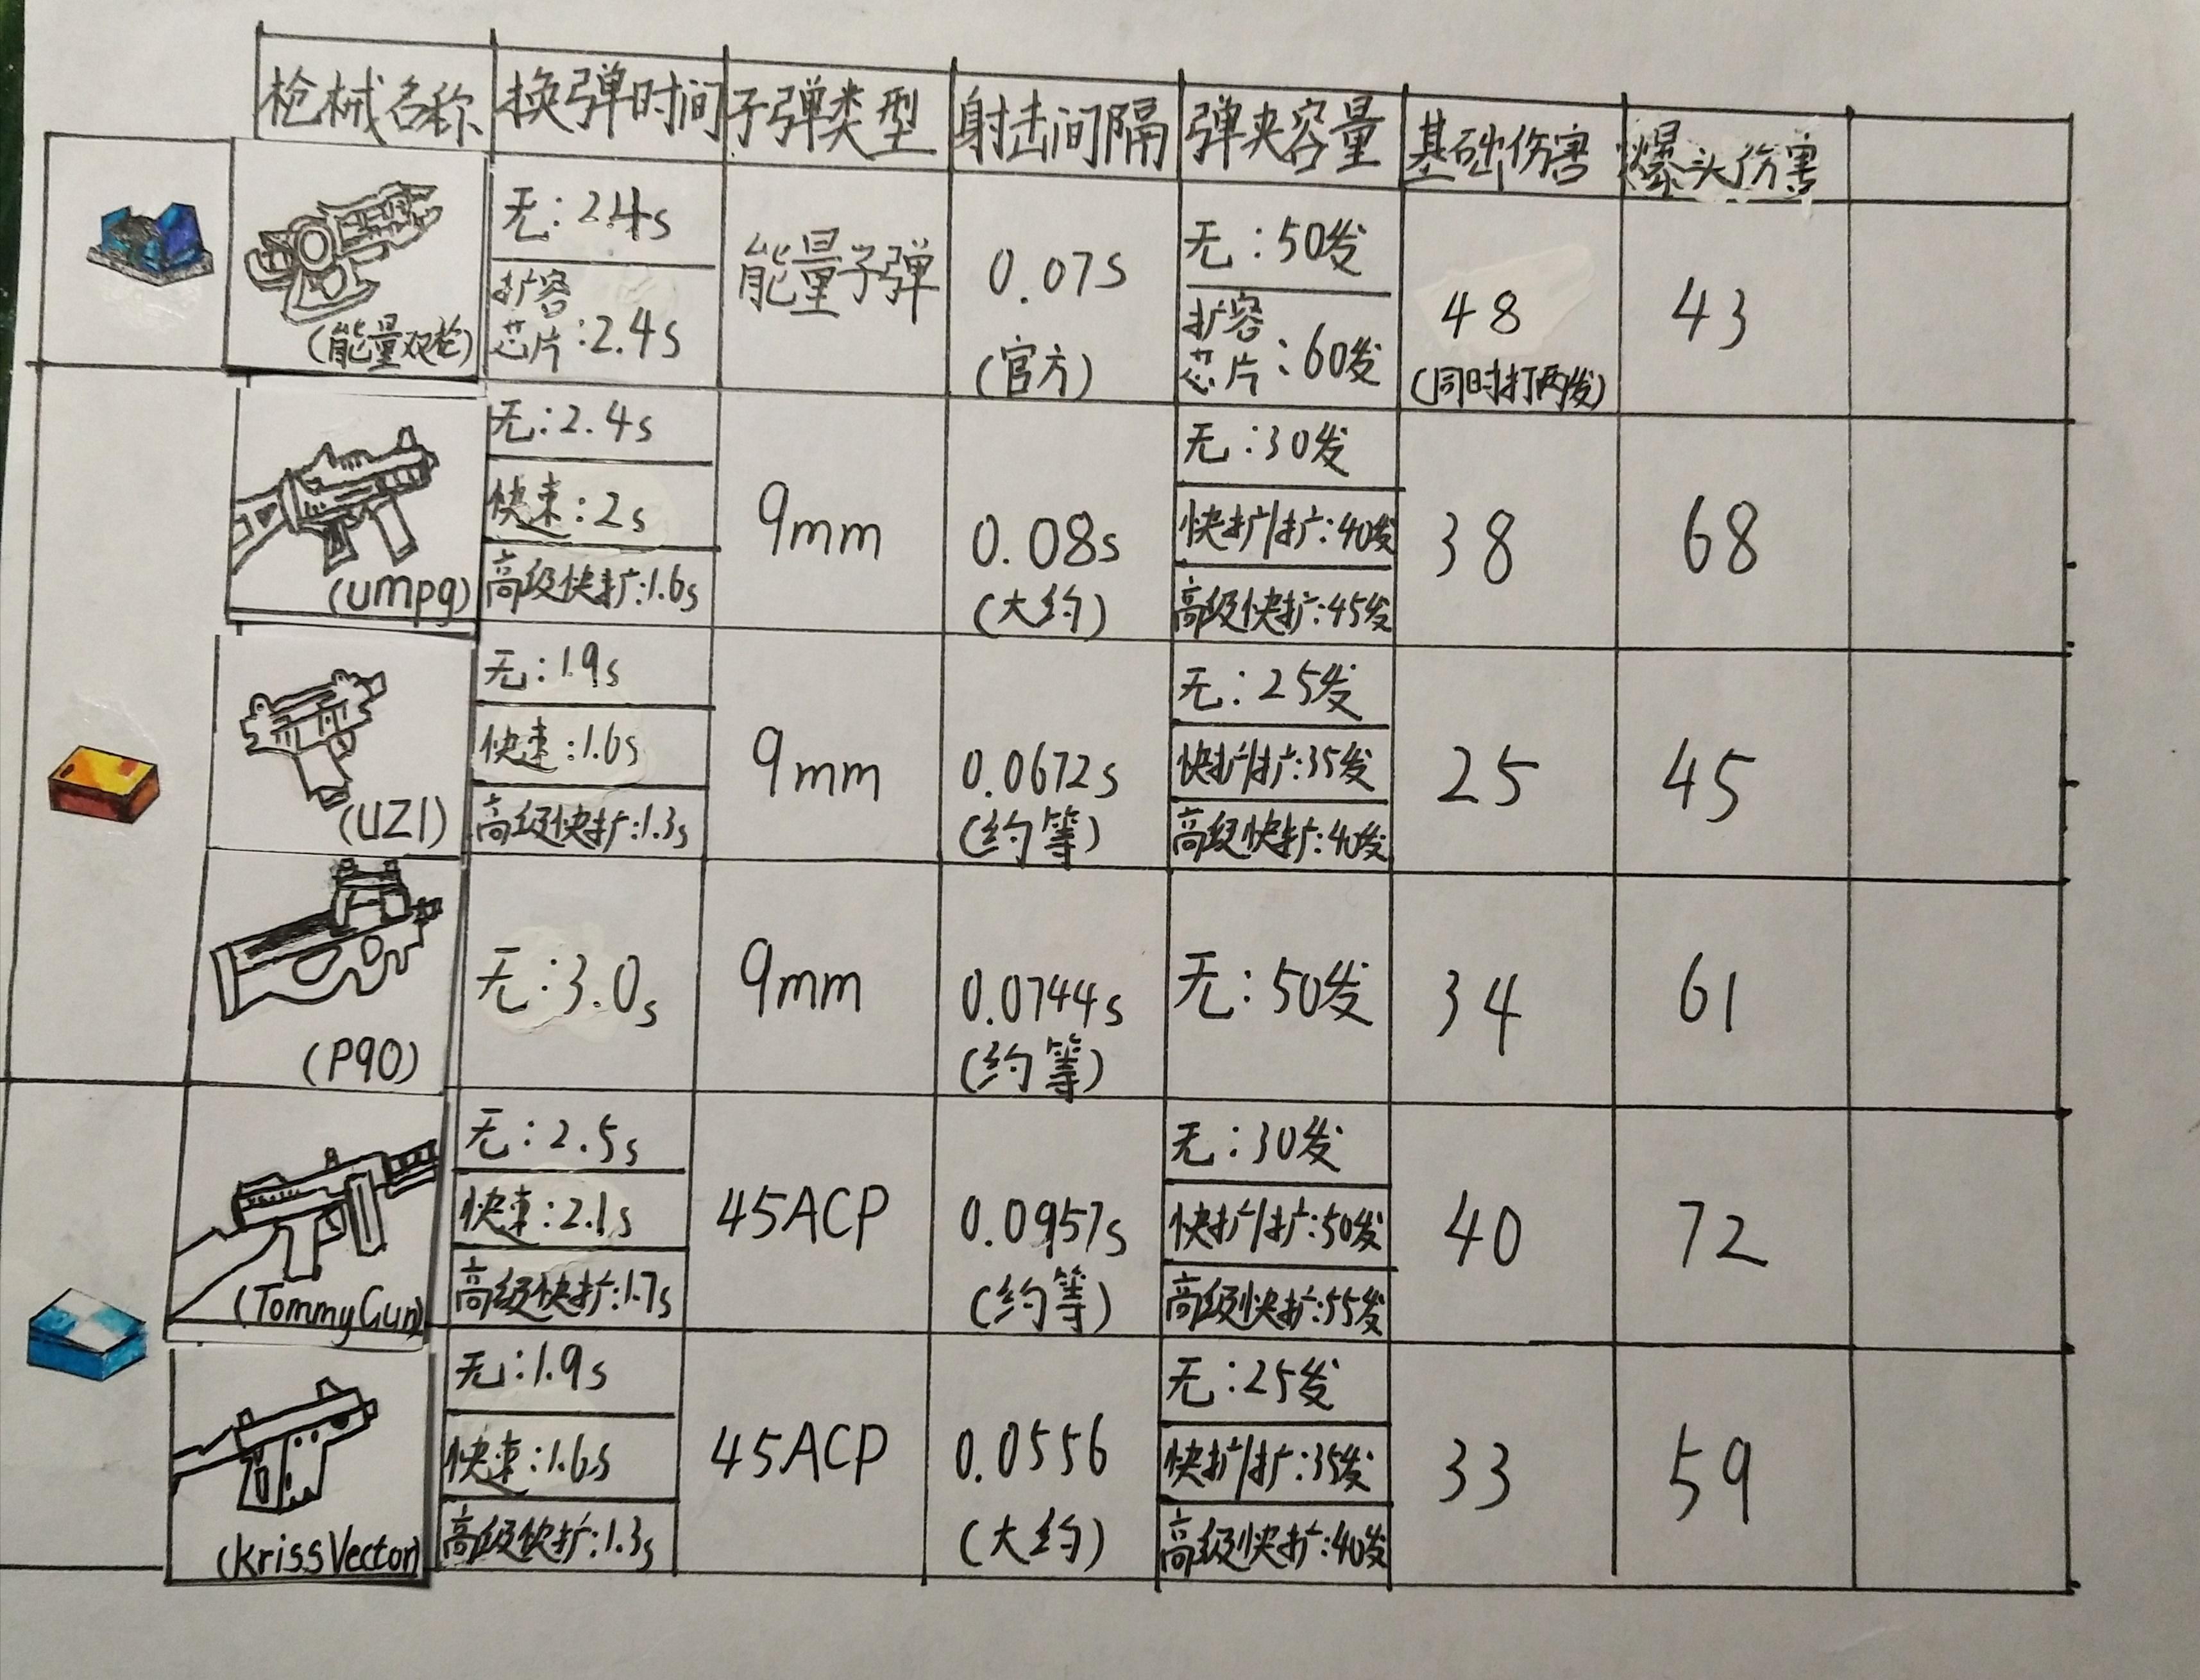 枪械名称 换弹时间 子弹类型 射击间隔 弹夹容量 基础伤害 爆头伤害
(能量双枪)
无:2.4s
扩容
芯片:2.4s
能量子弹
0.07s
(官方)
无:50发
扩容
芯片:60发
48
(同时打两发)
43
(umpq)
无:2.4s
快速:2s
高级快扩:1.6s
9mm
0.08s
(大约)
无:30发
快扩/扩:40发
高级快扩:45发
38
68
(UZI)
无:1.9s
快速:1.6s
高级快扩:1.3s
9mm
0.0672s
(约等)
无:25发
快扩/扩:35发
高级快扩:40发
25
45
(P90)
无:3.0s
9mm
0.0744s
(约等)
无:50发
34
61
(TommyGun)
无:2.5s
快速:2.1s
高级快扩:1.7s
45ACP
0.0957s
(约等)
无:30发
快扩/扩:50发
高级快扩:55发
40
72
(KrissVector)
无:1.9s
快速:1.6s
高级快扩:1.3s
45ACP
0.0556
(大约)
无:25发
快扩/扩:35发
高级快扩:40发
33
59